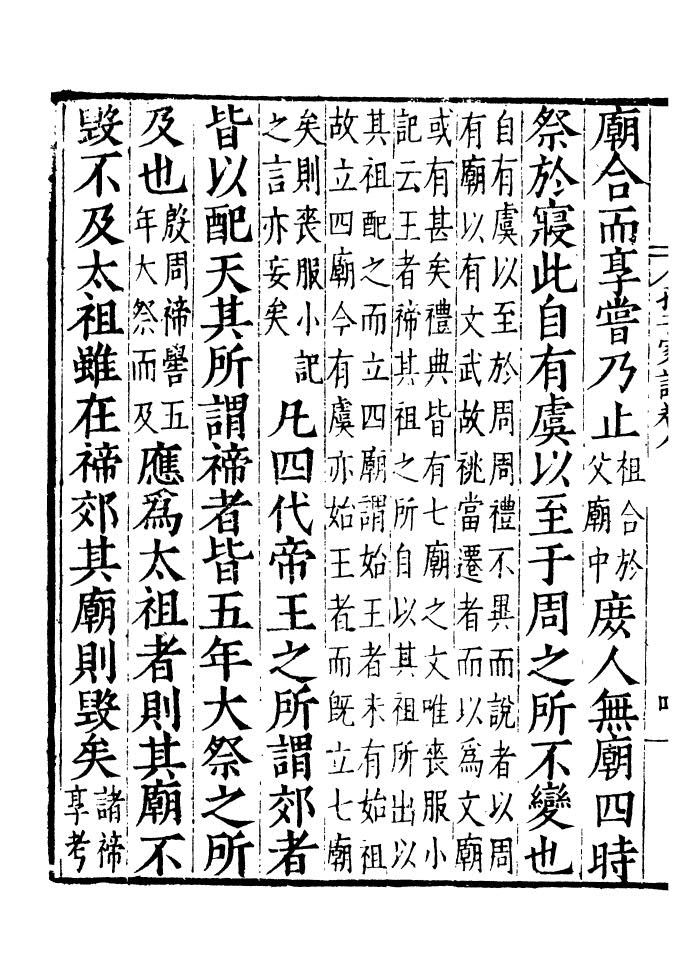 廟合而享嘗乃止祖合於父廟中庶人無廟四時
祭於寢此自有虞以至于周之所不變也
自有虞以至於周周禮不異而說者以周
有廟以有文武故祧當遷者而以爲文廟
或有甚矣禮典皆有七廟之文唯喪服小
記云王者禘其祖之所自以其祖所出以
其祖配之而立四廟謂始王者未有始祖
故立四廟今有虞亦始王者而旣立七廟
矣則喪服小記之言亦妄矣凡四代帝王之所謂郊者
皆以配天其所謂禘者皆五年大祭之所
及也殷周禘嚳五年大祭而及應爲太祖者則其廟不
毀不及太祖雖在禘郊其廟則毀矣諸禘享考